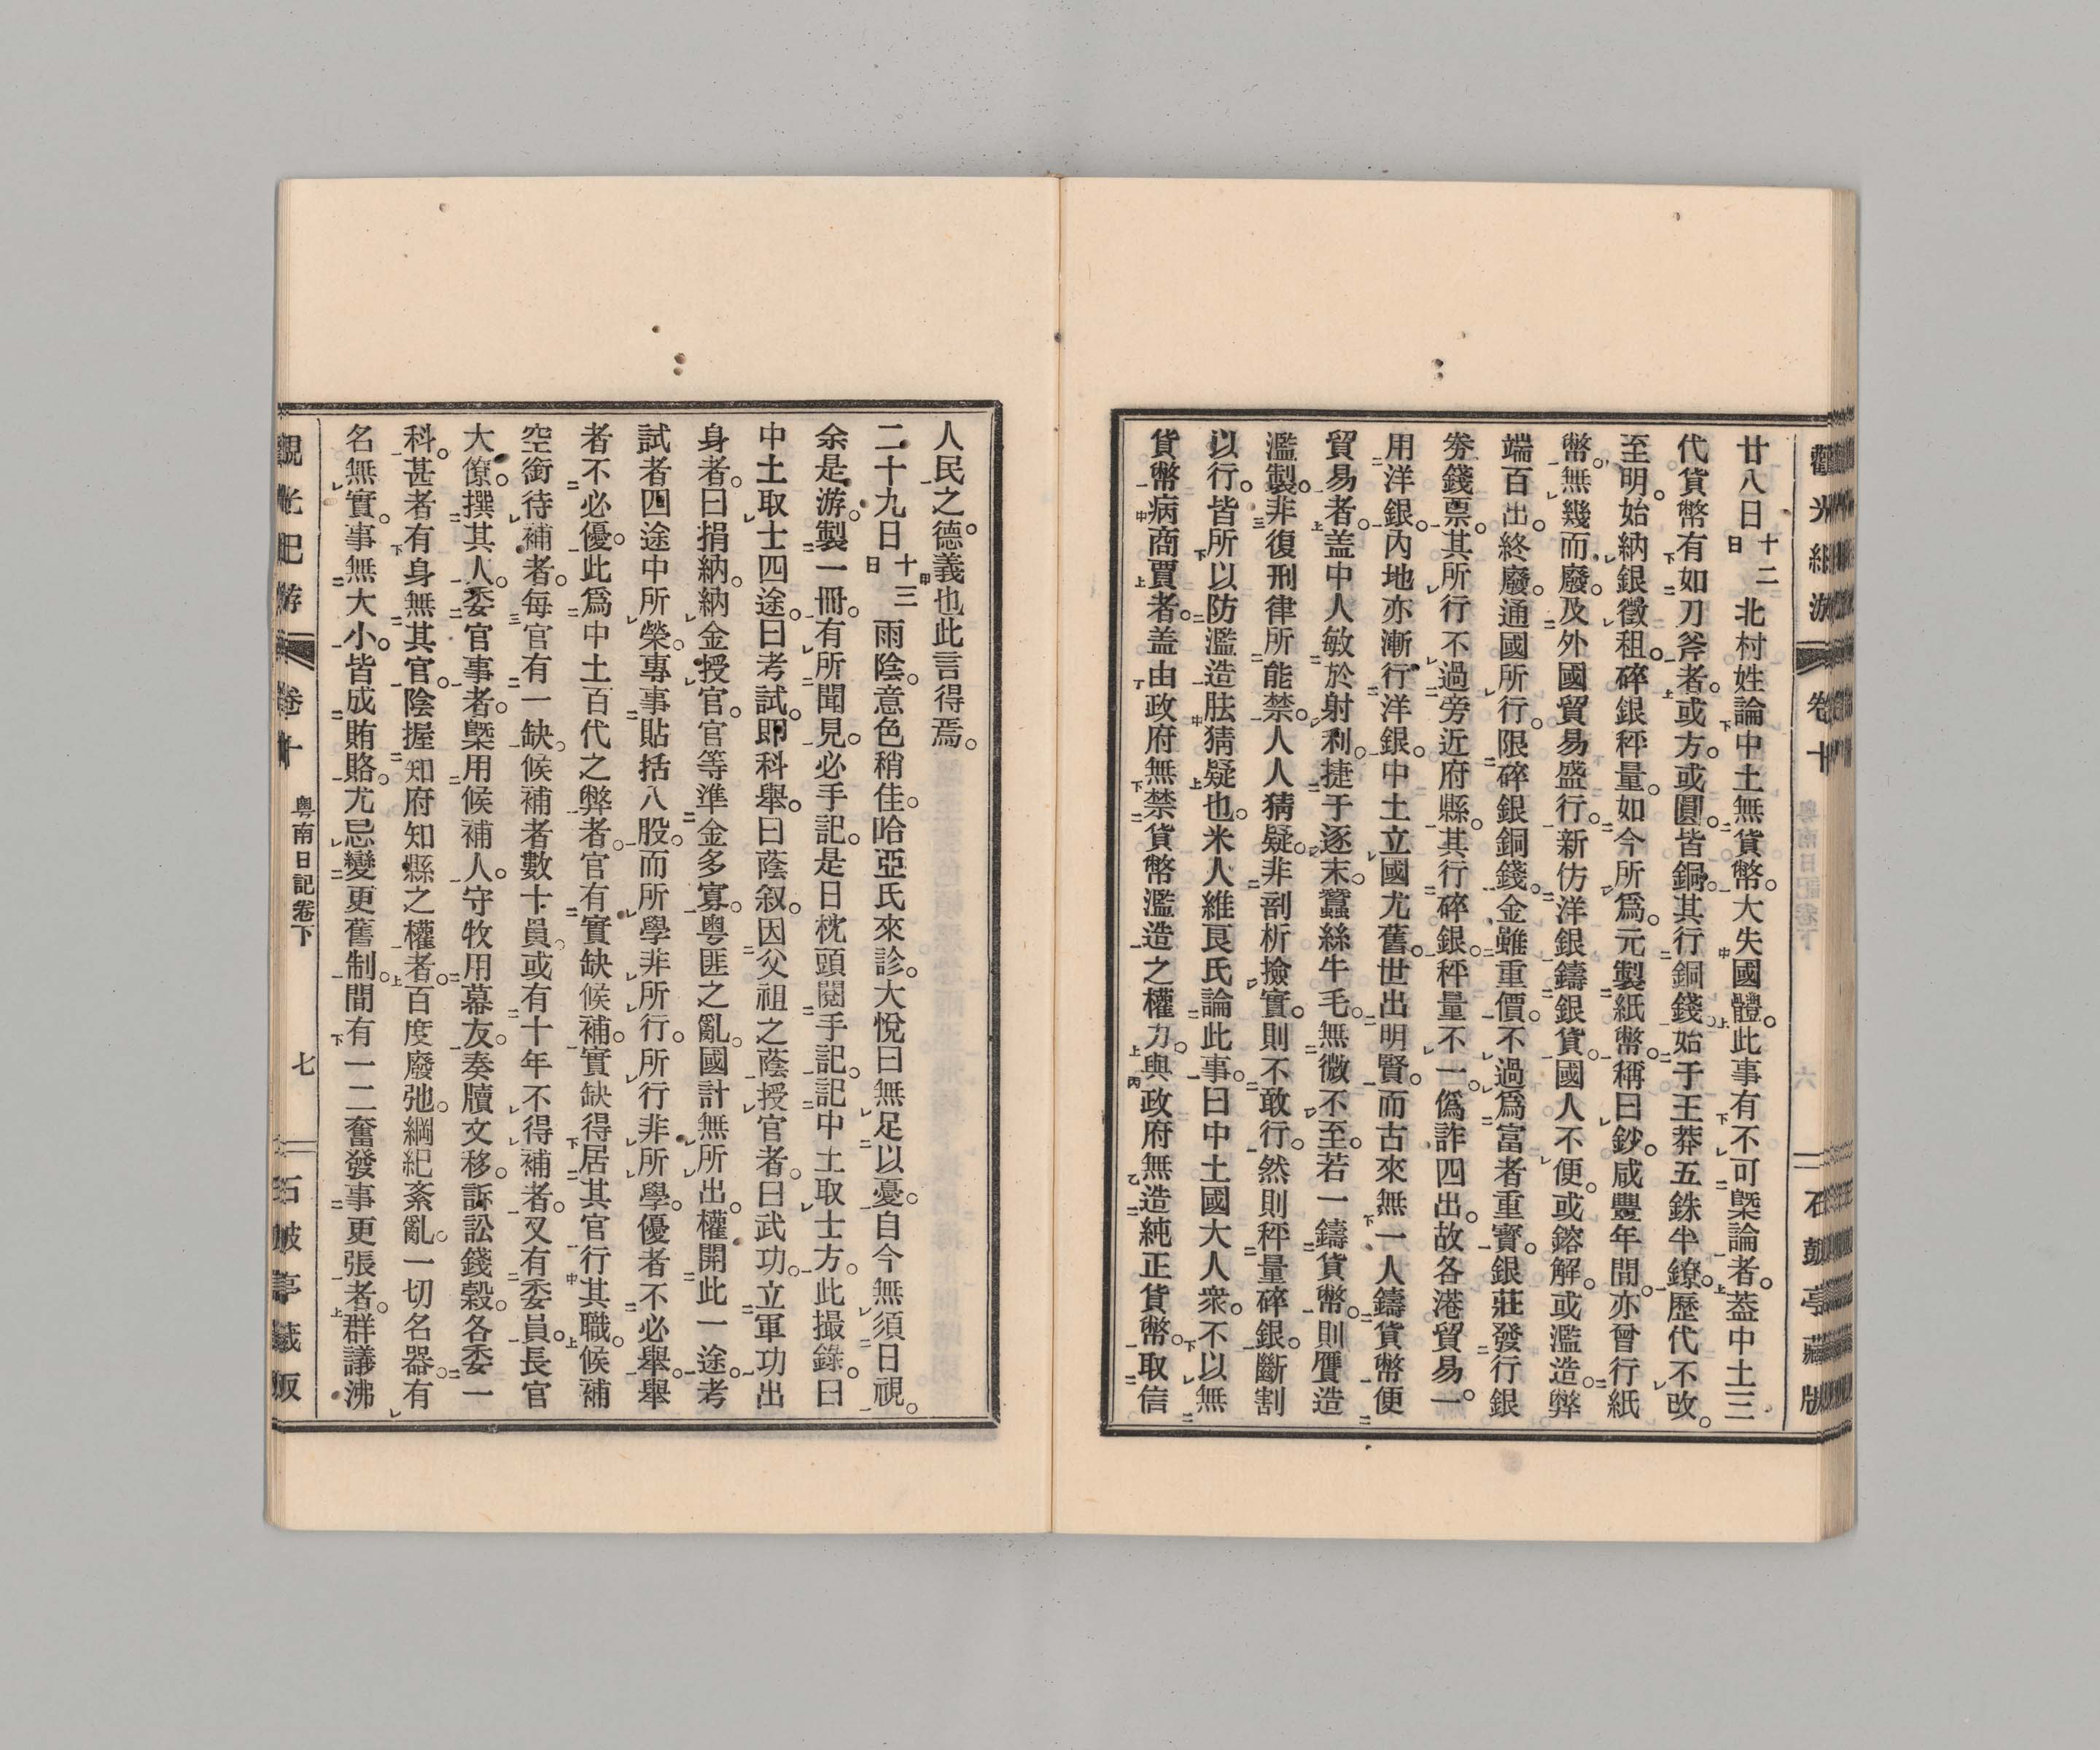 廿八日十二日北村姓論中土無貨幣。大失國體。此事有不可槩論者。葢中土三
代貨幣有如刀斧者。或方。或圓。皆銅。其行銅錢。始于王莽五銖半鐐。歷代不改。
至明。始納銀徵租。碎銀秤量。如今所爲。元製紙幣。稱曰鈔。咸豐年間。亦曾行紙
幣。無幾而廢。及外國貿易盛行。新仿洋銀鑄銀貨。國人不便。或鎔解。或濫造。弊
端百出。終廢。通國所行。限碎銀銅錢。金雖重價。不過爲富者重寶。銀莊發行銀
劵錢票。其所行不過旁近府縣。其行碎銀。秤量不一。僞詐四出。故各港貿易。一
用洋銀。內地亦漸行洋銀。中土立國尤舊。世出明賢。而古來無一人鑄貨幣便
貿易者。盖中人敏於射利。捷于逐末。蠶絲牛毛。無微不至。若一鑄貨幣。則贋造
濫製。非復刑律所能禁。人人猜疑。非剖析撿實。則不敢行。然則秤量碎銀。斷割
以行。皆所以防濫造胠猜疑也。米人維艮氏論此事。曰中土國大人衆。不以無
貨幣病商賈者。盖由政府無禁貨幣濫造之權力。與政府無造純正貨幣。取信
觀光紀游 卷十 石鼓亭藏版
人民之德義也此言得焉。
二十九日十三日雨陰。意色稍佳。哈亞氏來診。大悅曰無足以憂。自今無須日視。
余是游。製一冊。有所聞見。必手記。是日枕頭閱手記。記中土取士方。此撮錄。曰
中土取士四途。曰考試。即科舉。曰蔭叙。因父祖之蔭授官者。曰武功。立軍功出
身者。曰捐納。納金授官。官等準金多寡。粤匪之亂。國計無所出。權開此一途。考
試者四途中所榮。專事貼括八股。而所學非所行。所行非所學。優者不必舉。舉
者不必優。此爲中土百代之弊者。官有實缺候補。實缺得居其官行其職。候補
空銜待補者。每官有一缺。候補者數十員。或有十年不得補者。又有委員。長官
大僚。撰其人。委官事者。槩用候補人。守牧用幕友。奏牘文移。訴訟錢穀。各委一
科。甚者有身無其官。陰握知府知縣之權者。百度廢弛。綱紀紊亂。一切名器。有
名無實。事無大小。皆成賄賂。尤忌變更舊制。間有一二奮發事更張者。群議沸
觀光紀游 卷十 粤南日記卷下 七 石鼓亭藏版